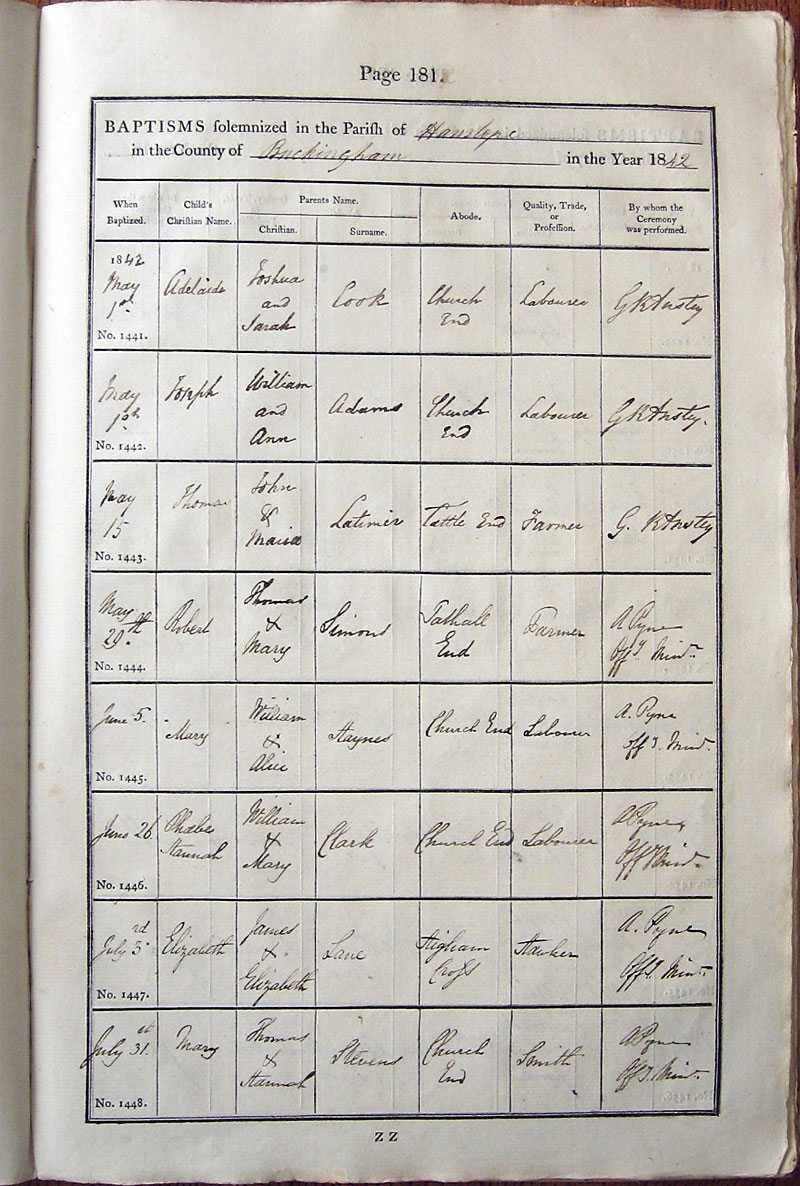 Page 181.
BAPTISMS solemnized in the Parish of Hanslope
in the County of Buckingham in the Year 1842
When Baptized.
Child's Christian Name.
Parents Name.
Christian.
Surname.
Abode.
Quality, Trade, or Profession.
By whom the Ceremony was performed.
1842
May
1st
No. 1441.
Adelaide
Joshua
and
Sarah
Cook
Church
End
Labourer
GKAnsty
May
1st
No. 1442.
Joseph
William
and
Ann
Adams
Church
End
Labourer
GKAnsty.
May
15
No. 1443.
Thomas
John
&
Maria
Latimer
Tattle End
Farmer
G. KAnsty
May
29th
No. 1444.
Robert
Thomas
&
Mary
Simons
Tathall
End
Farmer
A Pyne
Offg Minr
June 5.
No. 1445.
Mary
William
&
Alice
Haynes
Church End
Labourer
A. Pyne
offg. Minr.
June 26
No. 1446.
Phoebe
Hannah
William
&
Mary
Clark
Church End
Labourer
A Pyne
Offg Minr
July 3rd
No. 1447.
Elizabeth
James
&
Elizabeth
Lane
Higham
Cross
Hawker
A. Pyne
Offg. Minr.
July 31st
No. 1448.
Mary
Thomas
&
Hannah
Stevens
Church
End
Smith
A Pyne
Offg. Minr.
Z Z